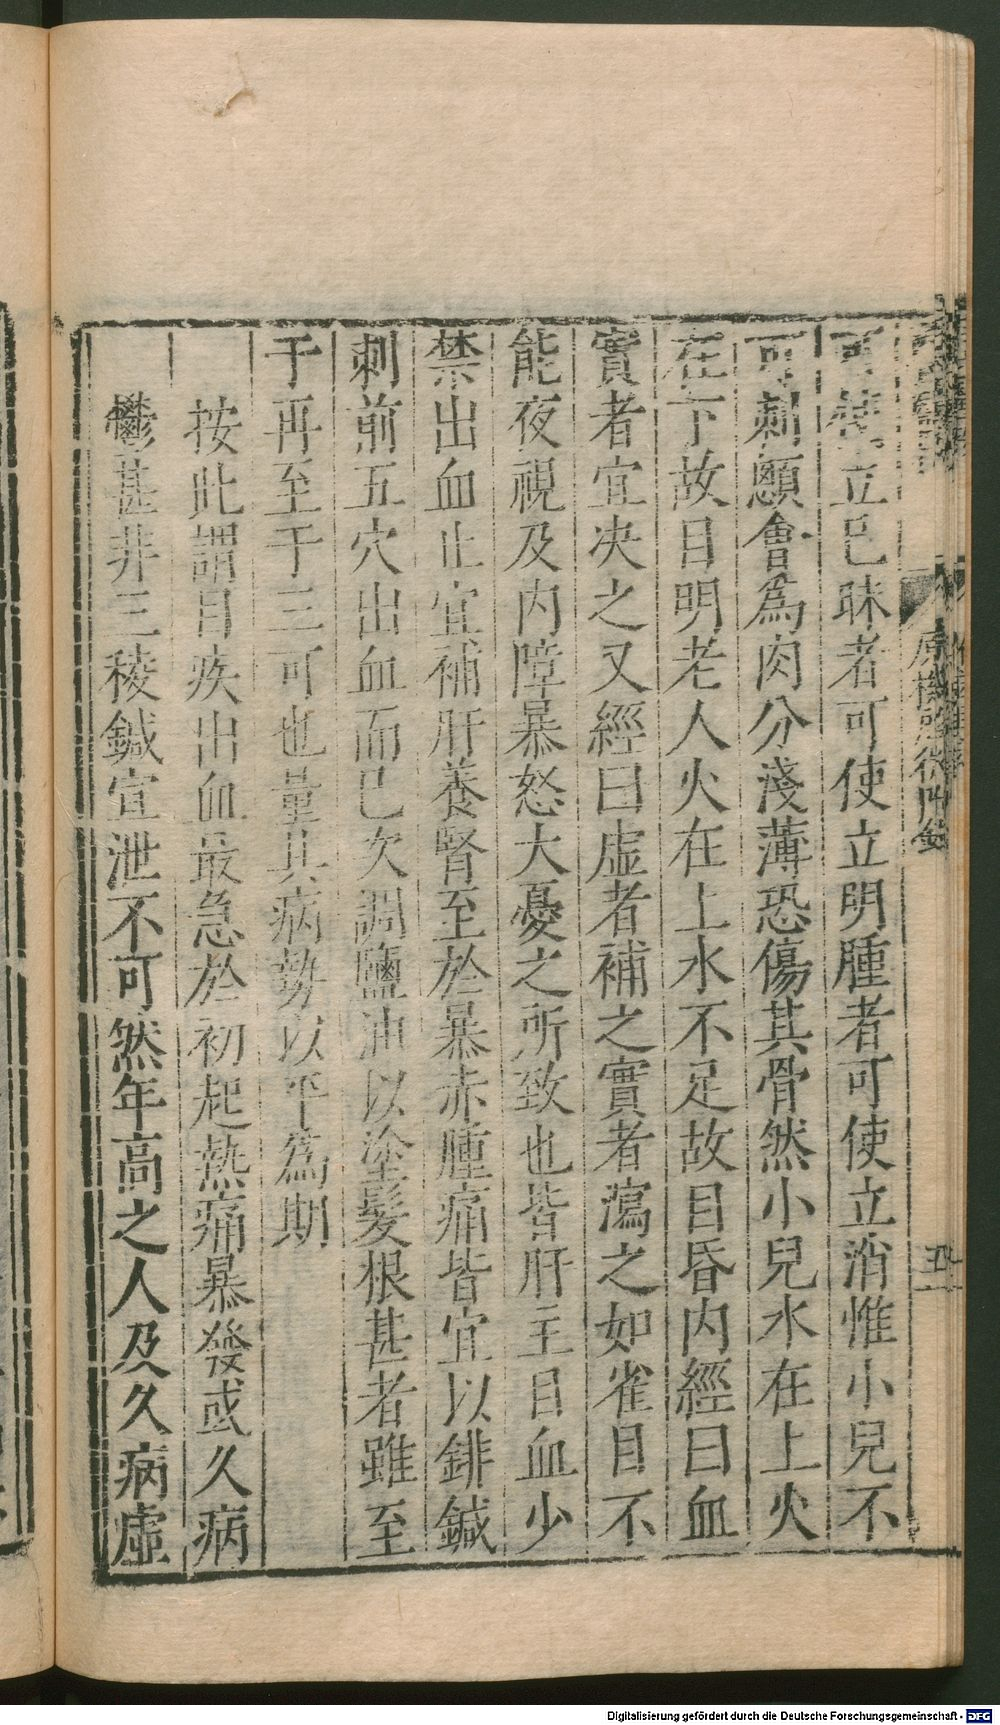 原機啓微附錄
五
可使立已昧者可使立明腫者可使立消惟小兒不
可刺顖會爲肉分淺薄恐傷其骨然小兒水在上火
在下故目明老人火在上水不足故目昏内經曰血
實者宜決之又經曰虛者補之實者瀉之如雀目不
能夜視及内障暴怒大憂之所致也皆肝主目血少
禁出血止宜補肝養腎至於暴赤腫痛皆宜以鍼
刺前五穴出血而已次調鹽油以塗髮根甚者雖至
于再至于三可也量其病勢以平爲期
按此謂目疾出血最急於初起熱痛暴發或久病
鬱甚非三稜鍼宣泄不可然年高之人及久病虛
Digitalisierung gefördert durch die Deutsche Forschungsgemeinschaft - DFG